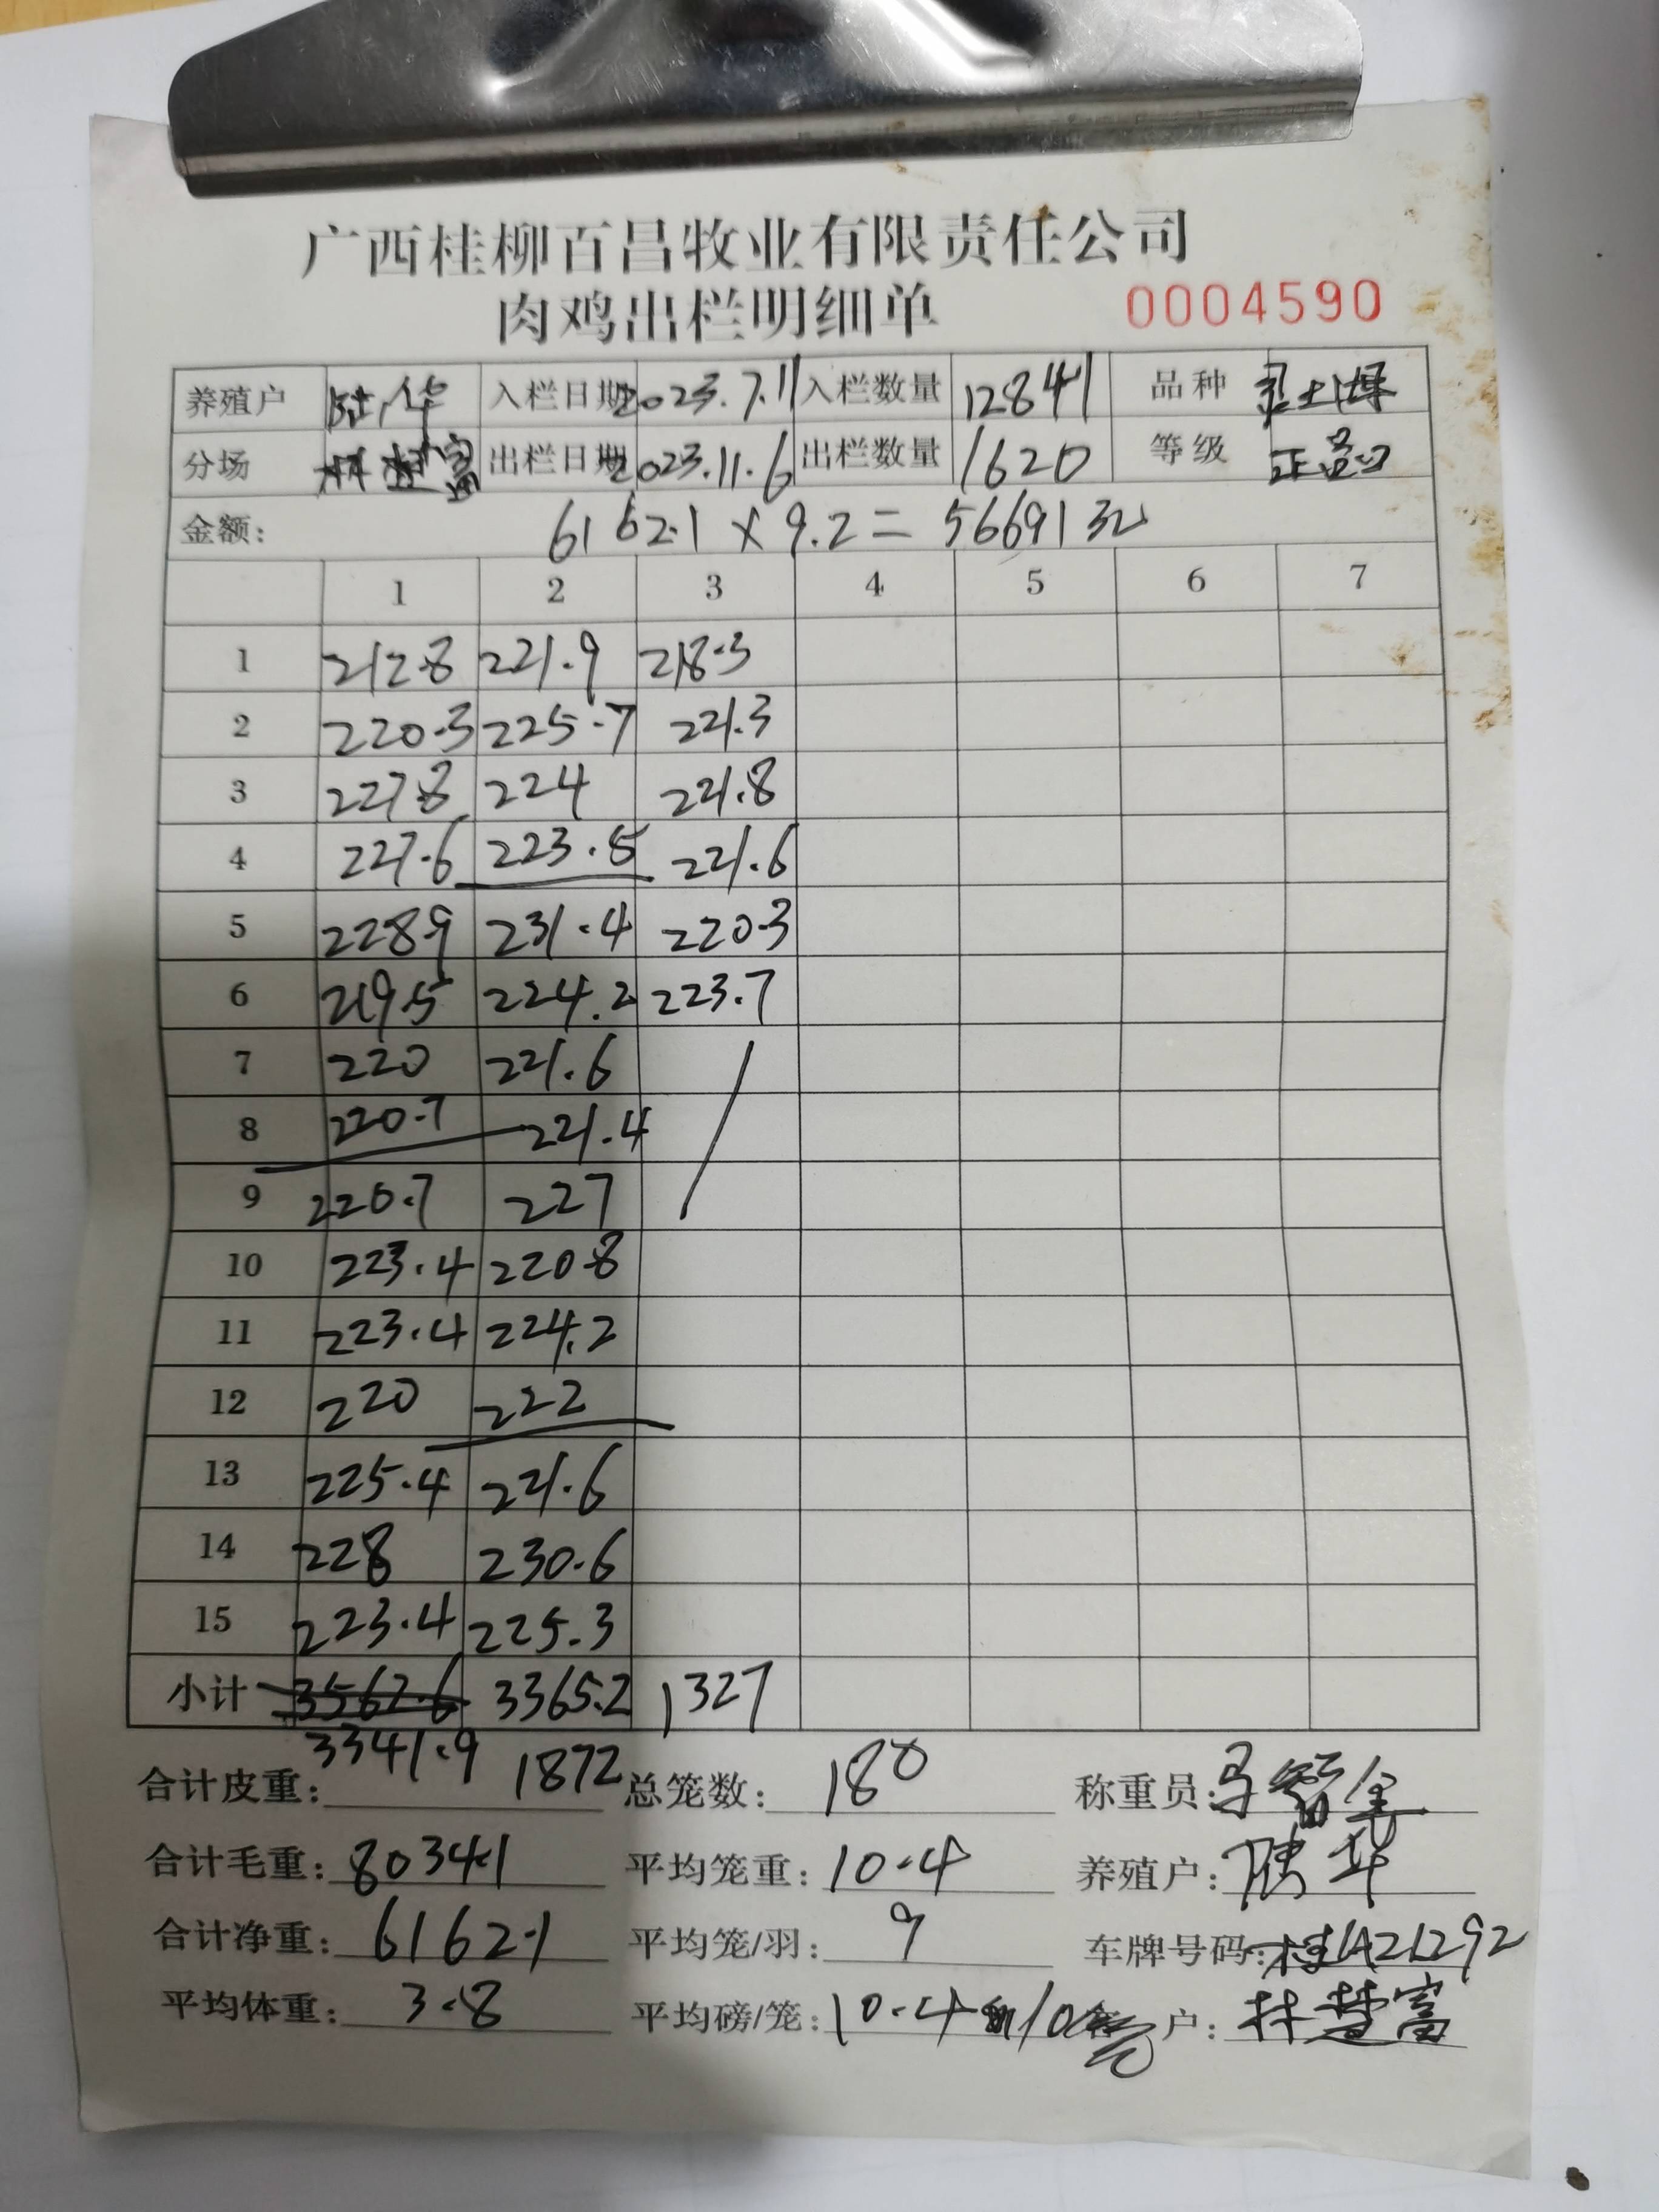 广西桂柳百昌牧业有限责任公司
肉鸡出栏明细单 0004590
养殖户 陆华 入栏日期 2023.7.11 入栏数量 12841 品种
分场 林楚富 出栏日期 2023.11.6 出栏数量 1620 等级 正品
金额: 6162.1 × 9.2 = 56691元
1 2 3 4 5 6 7
1 212.8 221.9 218.3
2 220.3 225.7 221.3
3 227.8 224 221.8
4 227.6 223.5 221.6
5 228.9 231.4 220.3
6 219.5 224.2 223.7
7 220 221.6
8 220.7 221.4
9 220.7 227
10 223.4 220.8
11 223.4 224.2
12 220 222
13 225.4 221.6
14 228 230.6
15 223.4 225.3
小计 3562.6 3365.2 1327
3341.9
合计皮重: 1872 总笼数: 180 称重员:
合计毛重: 8034.1 平均笼重: 10.4 养殖户: 陆华
合计净重: 6162.1 平均笼/羽: 9 车牌号码:
平均体重: 3.8 平均磅/笼: 10.4 户: 林楚富